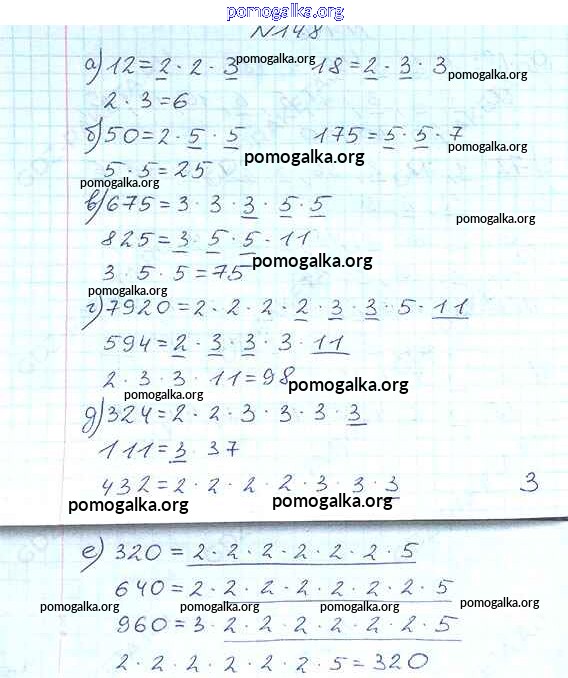 pomogalka.org
N148
pomogalka.org
а) 12 = 2 · 2 · 3 18 = 2 · 3 · 3
pomogalka.org
2 · 3 = 6
б) 50 = 2 · 5 · 5 175 = 5 · 5 · 7
pomogalka.org
pomogalka.org
5 · 5 = 25
pomogalka.org
в) 675 = 3 · 3 · 3 · 5 · 5
pomogalka.org
825 = 3 · 5 · 5 · 11
pomogalka.org
3 · 5 · 5 = 75
pomogalka.org
г) 7920 = 2 · 2 · 2 · 2 · 3 · 3 · 5 · 11
594 = 2 · 3 · 3 · 3 · 11
2 · 3 · 3 · 11 = 98
pomogalka.org
pomogalka.org
д) 324 = 2 · 2 · 3 · 3 · 3 · 3
111 = 3 · 37
432 = 2 · 2 · 2 · 2 · 3 · 3 · 3 3
pomogalka.org pomogalka.org
е) 320 = 2 · 2 · 2 · 2 · 2 · 2 · 5
640 = 2 · 2 · 2 · 2 · 2 · 2 · 2 · 5
pomogalka.org pomogalka.org pomogalka.org pomogalka.org
960 = 3 · 2 · 2 · 2 · 2 · 2 · 2 · 5
2 · 2 · 2 · 2 · 2 · 2 · 5 = 320